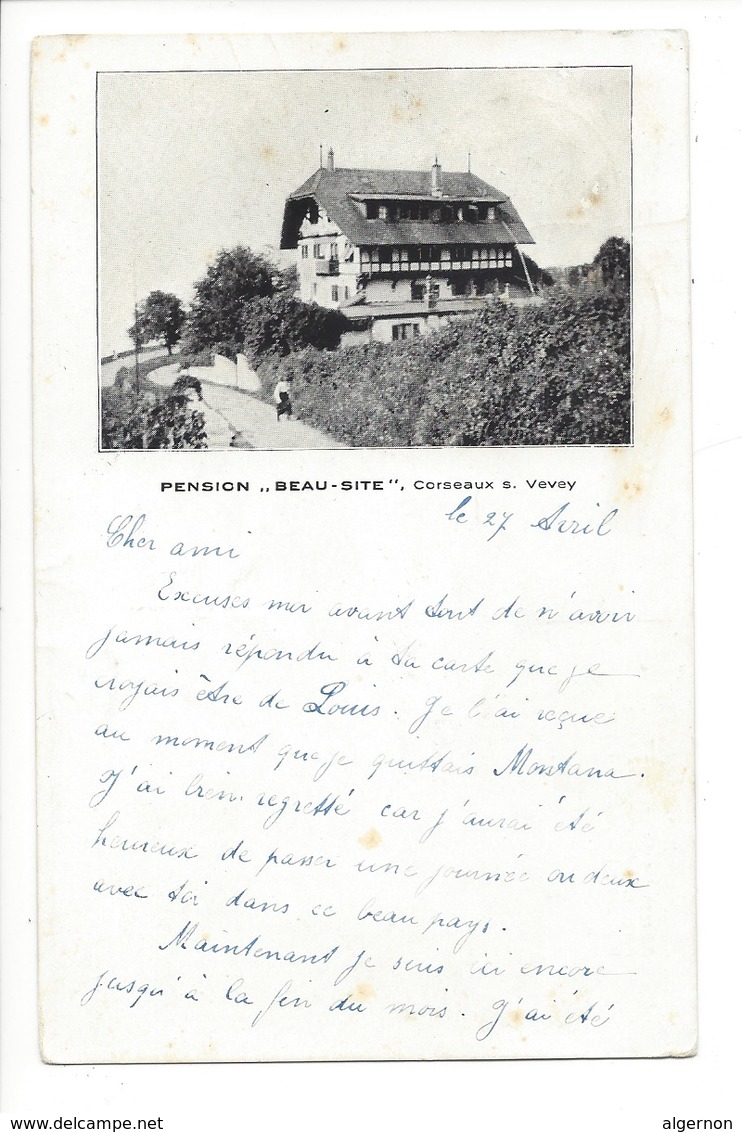 PENSION „BEAU-SITE", Corseaux s. Vevey
le 27 Avril
Cher ami
Excuses moi avant tout de n'avoir
jamais répondu à ta carte que je
croyais être de Louis. Je l'ai reçue
au moment que je quittais Montana.
J'ai bien regretté car j'aurai été
heureux de passer une journée ou deux
avec toi dans ce beau pays.
Maintenant je suis ici encore
jusqu'à la fin du mois. J'ai été
delcampe.net
algernon